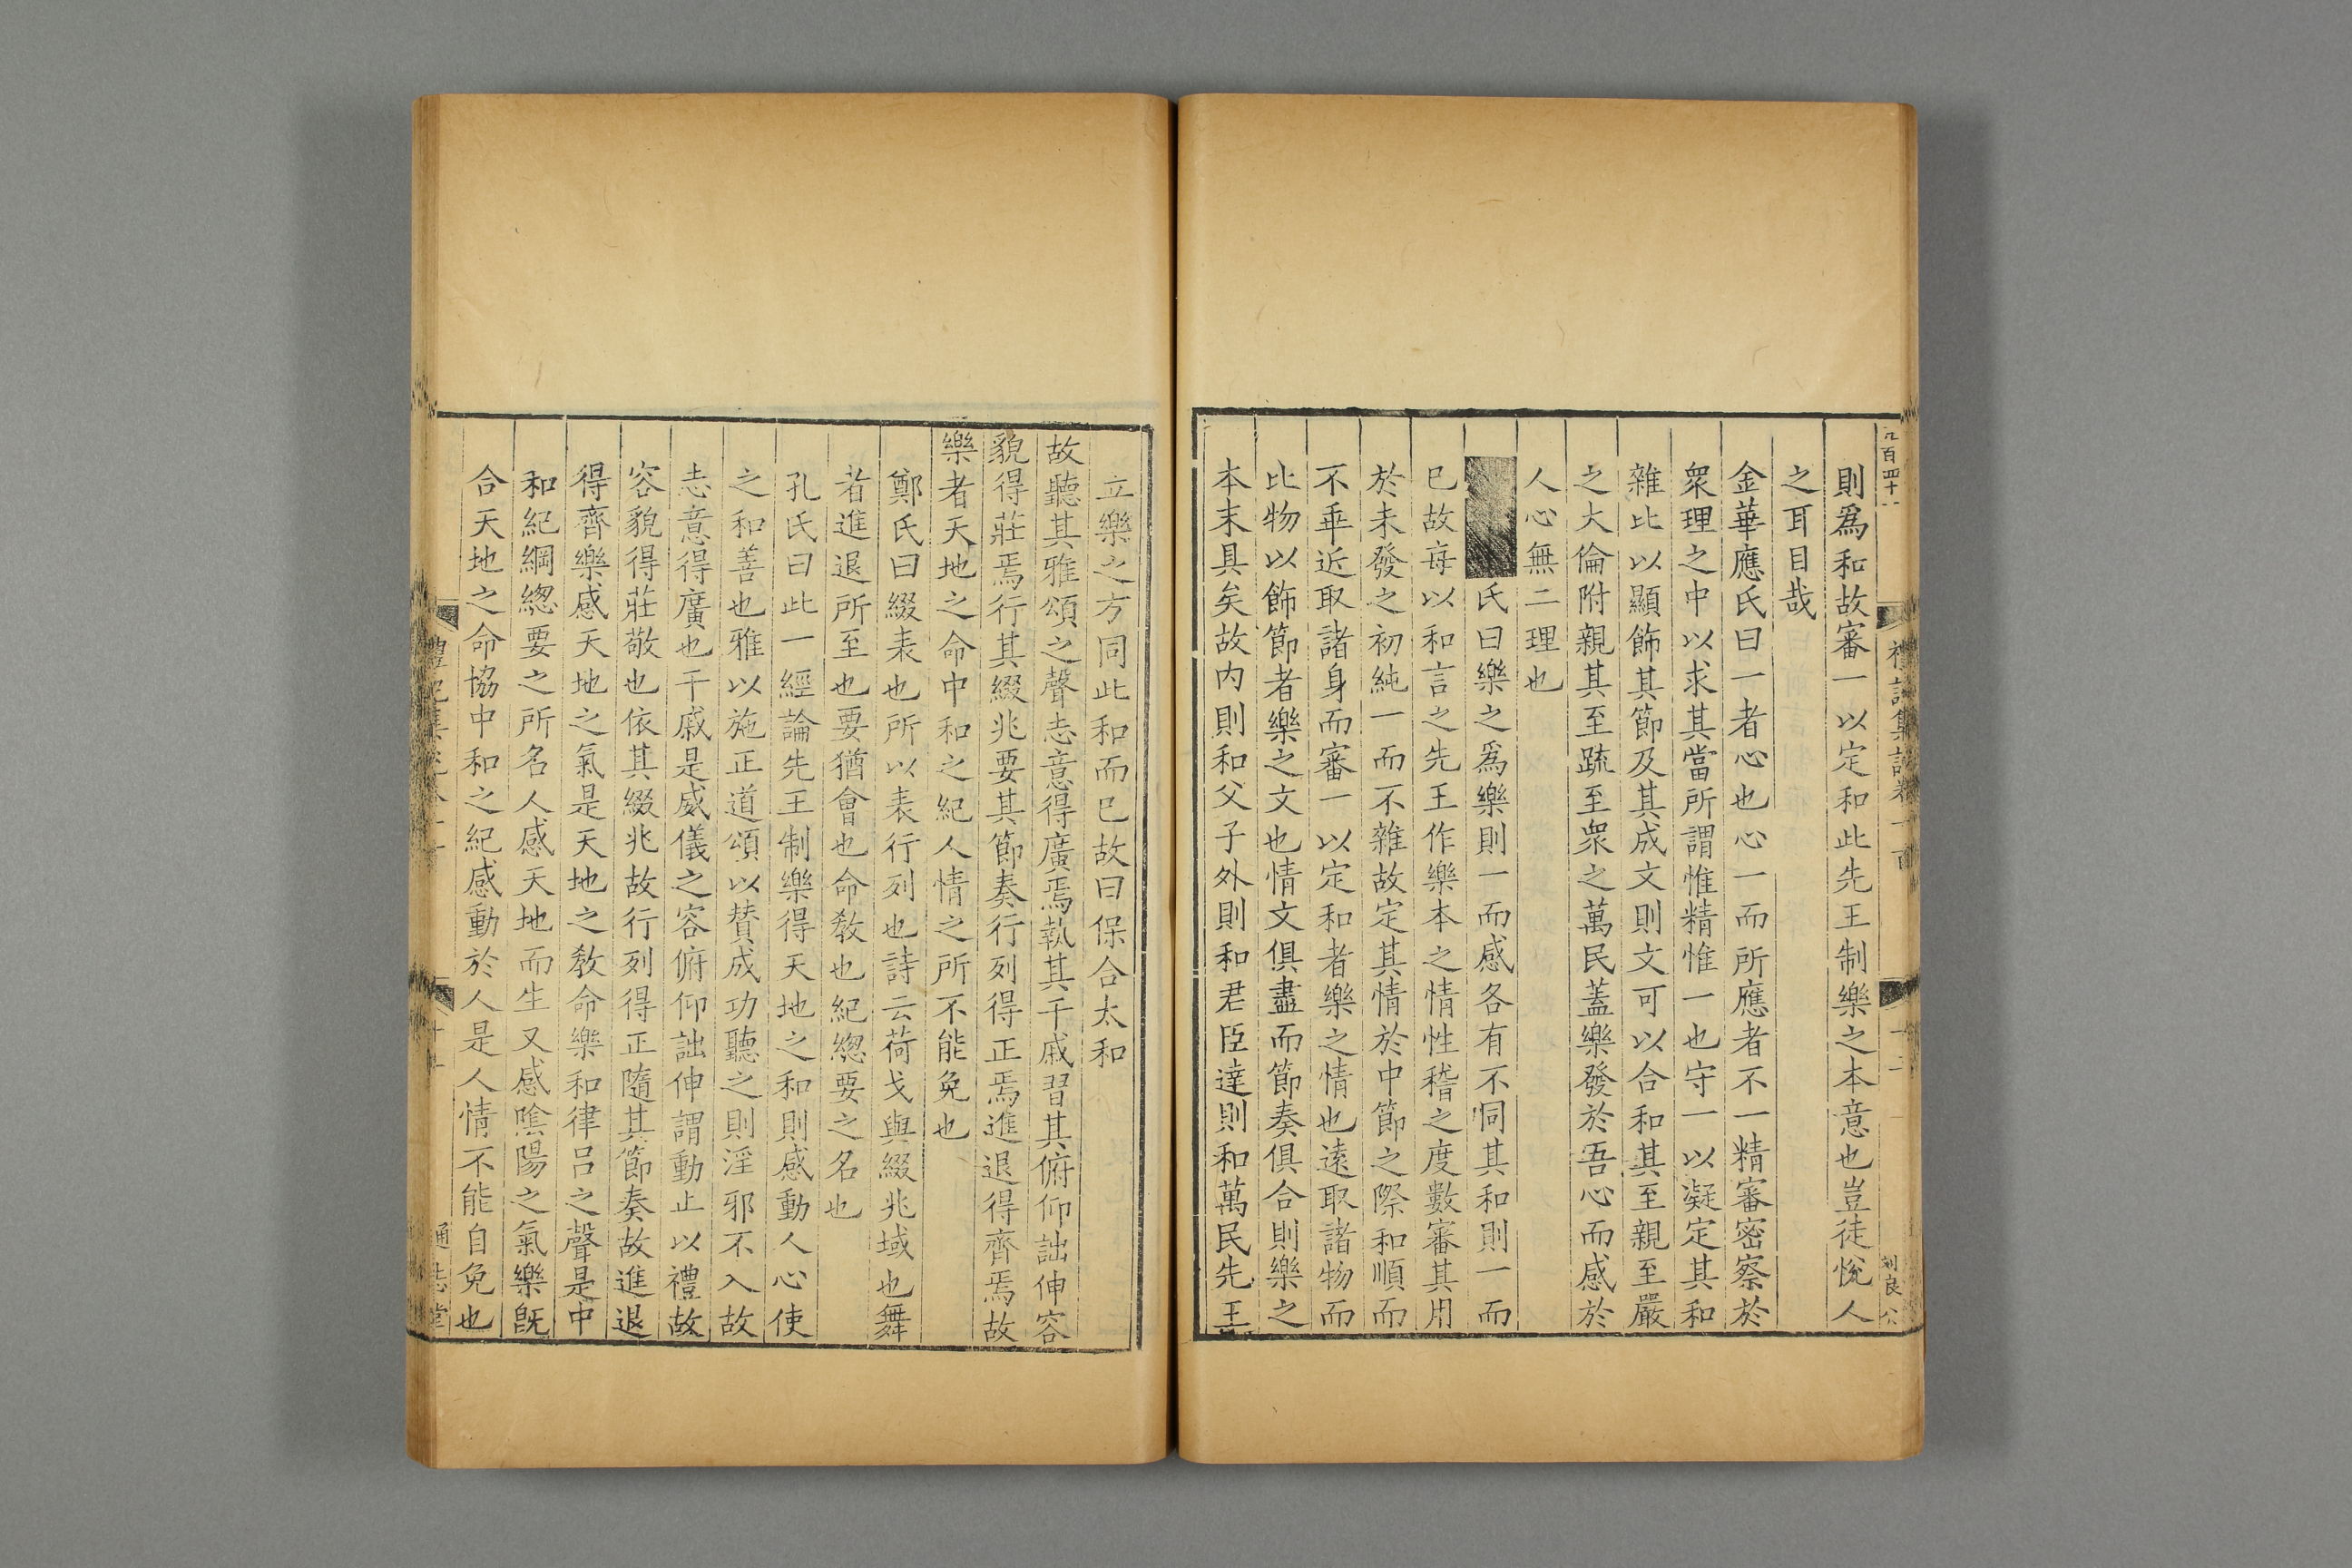 則爲和故審一以定和此先王制樂之本意也豈徒悅人
之耳目哉
金華應氏曰一者心也心一而所應者不一精審密察於
衆理之中以求其當所謂惟精惟一也守一以凝定其和
雜比以顯飾其節及其成文則文可以合和其至親至嚴
之大倫附親其至疏至衆之萬民蓋樂發於吾心而感於
人心無二理也
氏曰樂之爲樂則一而感各有不同其和則一而
已故每以和言之先王作樂本之情性稽之度數審其用
於未發之初純一而不雜故定其情於中節之際和順而
不乖近取諸身而審一以定和者樂之情也遠取諸物而
比物以飾節者樂之文也情文俱盡而節奏俱合則樂之
本末具矣故内則和父子外則和君臣達則和萬民先王
立樂之方同此和而已故曰保合太和
故聽其雅頌之聲志意得廣焉執其干戚習其俯仰詘伸容
貌得莊焉行其綴兆要其節奏行列得正焉進退得齊焉故
樂者天地之命中和之紀人情之所不能免也
鄭氏曰綴表也所以表行列也詩云荷戈與綴兆域也舞
者進退所至也要猶會也命敎也紀緫要之名也
孔氏曰此一經論先王制樂得天地之和則感動人心使
之和善也雅以施正道頌以賛成功聽之則淫邪不入故
志意得廣也干戚是威儀之容俯仰詘伸謂動止以禮故
容貌得莊敬也依其綴兆故行列得正隨其節奏故進退
得齊樂感天地之氣是天地之敎命樂和律呂之聲是中
和紀綱緫要之所名人感天地而生又感隂陽之氣樂旣
合天地之命協中和之紀感動於人是人情不能自免也